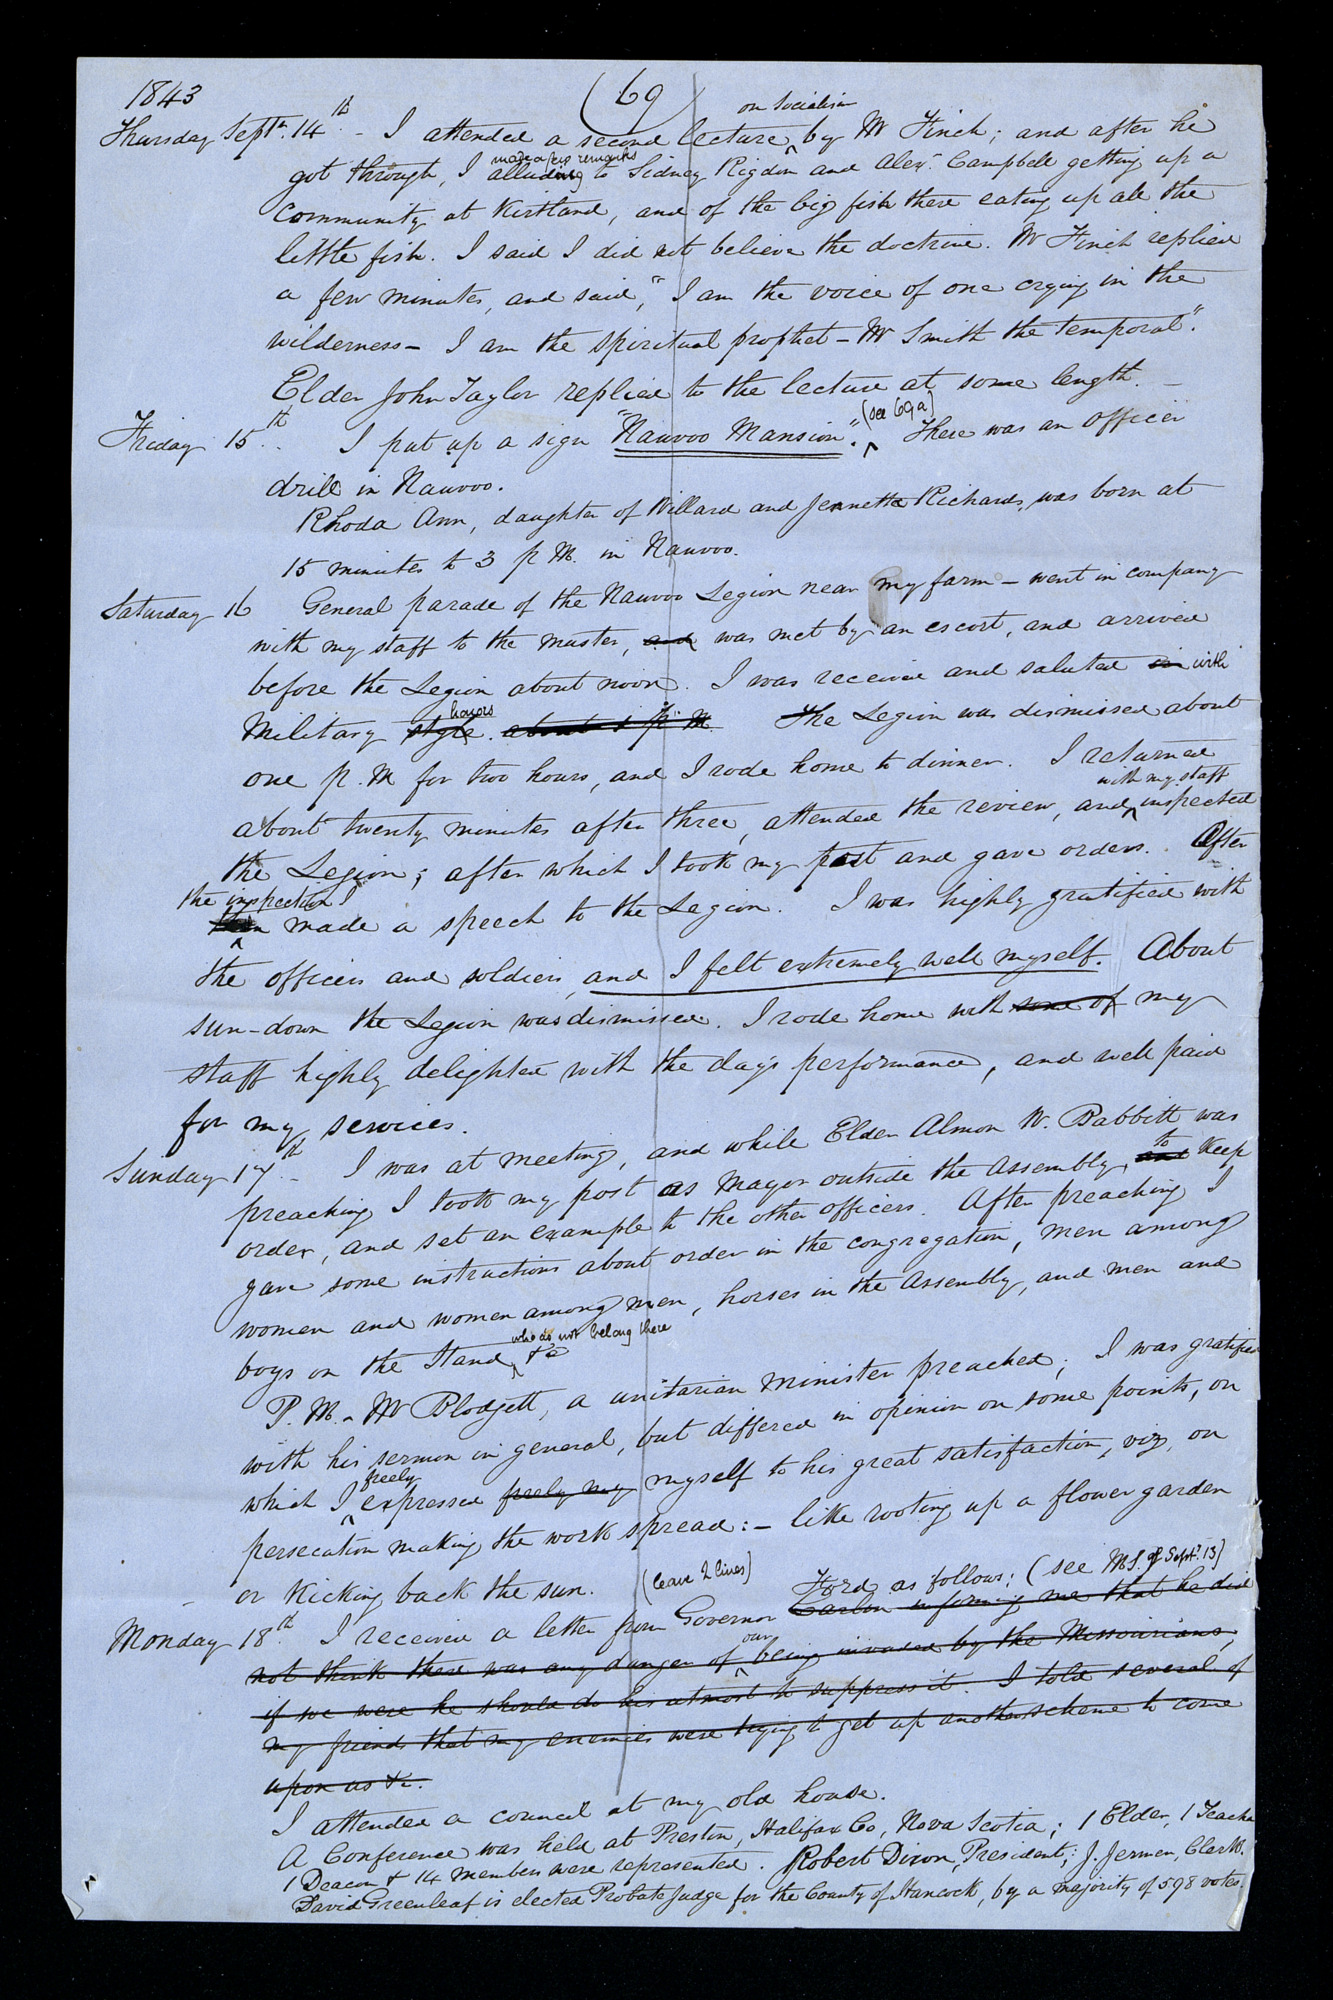 1843
(69)
on Socialism
Thursday Sept.r 14th - I attended a second lecture ^ by Mr Finch; and after he
made a few remarks
got through, I alluding to Sidney Rigdon and Alexr. Campbell getting up a
community at Kirtland, and of the big fish there eating up all the
little fish. I said I did not believe the doctrine. Mr Finch replied
a few minutes, and said, "I am the voice of one crying in the
wilderness - I am the spiritual prophet - Mr Smith the temporal".
Elder John Taylor replied to the lecture at some length.
(see 69a)
Friday 15th. I put up a sign "Nauvoo Mansion". ^ There was an officer
drill in Nauvoo.
Rhoda Ann, daughter of Willard and Jennetta Richards, was born at
15 minutes to 3 p M. in Nauvoo.
Saturday 16 General parade of the Nauvoo Legion near my farm - went in company
with my staff to the muster, and was met by an escort, and arrived
before the Legion about noon. I was received and saluted in with
honors
Military style. about 1 p M. The Legion was dismissed about
one p. M for two hours, and I rode home to dinner. I returned
with my staff
about twenty minutes after three, attended the review, and ^ inspected
the Legion; after which I took my post and gave orders. After
the inspection I
then made a speech to the Legion. I was highly gratified with
^
the officers and soldiers, and I felt extremely well myself. About
sun-down the Legion was dismissed. I rode home with some of my
staff highly delighted with the day's performance, and well paid
for my services.
Sunday 17th - I was at meeting, and while Elder Almon W. Babbitt was
to
preaching I took my post as Mayor outside the assembly, and keep
order, and set an example to the other officers. After preaching I
gave some instructions about order in the congregation, men among
women and women among men, horses in the assembly, and men and
who do not belong there
boys on the Stand ^ &c
P. M. - Mr Blodgett, a unitarian minister preached; I was gratified
with his sermon in general, but differed in opinion on some points, on
freely
which I ^ expressed freely my myself to his great satisfaction, viz, on
persecution making the work spread: - like rooting up a flower garden
or kicking back the sun. (leave 2 lines)
Ford as follows: (see MS. of Sept.r 13)
Monday 18th. I received a letter from Governor Carlin informing me that he did
our
not think there was any danger of ^ being invaded by the Missourians,
if we were he should do his utmost to suppress it. I told several of
my friends that my enemies were trying to get up another scheme to come
upon us &c.
I attended a council at my old house.
A Conference was held at Preston, Halifax Co, Nova Scotia; 1 Elder, 1 Teacher
1 Deacon & 14 members were represented. Robert Dixon, President; J. Jermen, Clerk.
David Greenleaf is elected Probate Judge for the County of Hancock, by a majority of 598 votes.